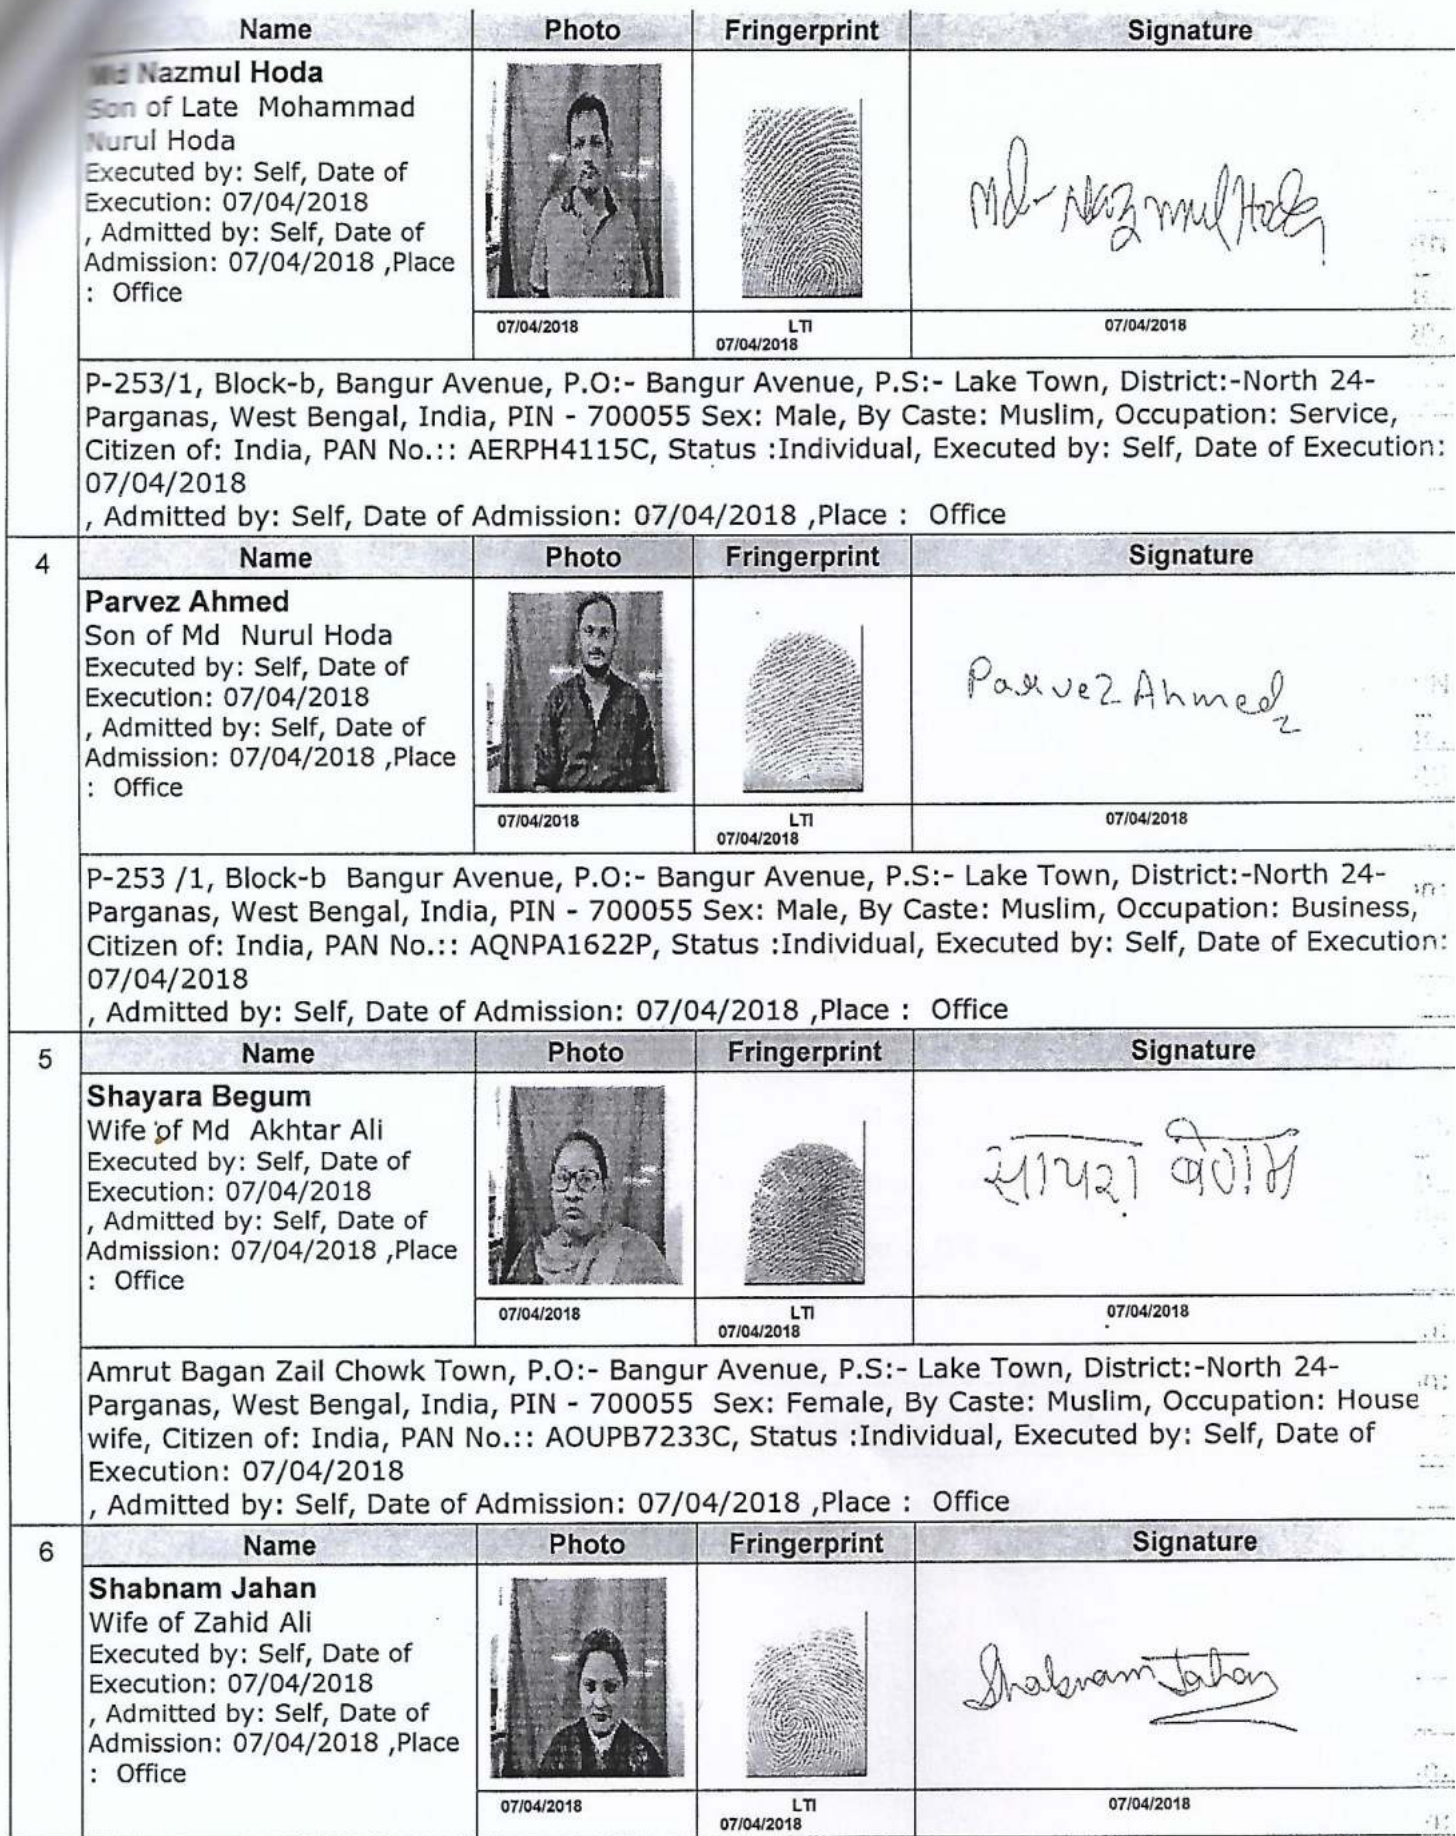 Name Photo Fringerprint Signature
Md Nazmul Hoda
Son of Late Mohammad
Nurul Hoda
Executed by: Self, Date of
Execution: 07/04/2018
, Admitted by: Self, Date of
Admission: 07/04/2018 ,Place
: Office
Md Nazmul Hoda
07/04/2018 LTI 07/04/2018
07/04/2018
P-253/1, Block-b, Bangur Avenue, P.O:- Bangur Avenue, P.S:- Lake Town, District:-North 24-
Parganas, West Bengal, India, PIN - 700055 Sex: Male, By Caste: Muslim, Occupation: Service,
Citizen of: India, PAN No.:: AERPH4115C, Status :Individual, Executed by: Self, Date of Execution:
07/04/2018
, Admitted by: Self, Date of Admission: 07/04/2018 ,Place : Office
4 Name Photo Fringerprint Signature
Parvez Ahmed
Son of Md Nurul Hoda
Executed by: Self, Date of
Execution: 07/04/2018
, Admitted by: Self, Date of
Admission: 07/04/2018 ,Place
: Office
Parvez Ahmed
07/04/2018 LTI 07/04/2018
07/04/2018
P-253 /1, Block-b Bangur Avenue, P.O:- Bangur Avenue, P.S:- Lake Town, District:-North 24-
Parganas, West Bengal, India, PIN - 700055 Sex: Male, By Caste: Muslim, Occupation: Business,
Citizen of: India, PAN No.:: AQNPA1622P, Status :Individual, Executed by: Self, Date of Execution:
07/04/2018
, Admitted by: Self, Date of Admission: 07/04/2018 ,Place : Office
5 Name Photo Fringerprint Signature
Shayara Begum
Wife of Md Akhtar Ali
Executed by: Self, Date of
Execution: 07/04/2018
, Admitted by: Self, Date of
Admission: 07/04/2018 ,Place
: Office
सायरा बेगम
07/04/2018 LTI 07/04/2018
07/04/2018
Amrut Bagan Zail Chowk Town, P.O:- Bangur Avenue, P.S:- Lake Town, District:-North 24-
Parganas, West Bengal, India, PIN - 700055 Sex: Female, By Caste: Muslim, Occupation: House
wife, Citizen of: India, PAN No.:: AOUPB7233C, Status :Individual, Executed by: Self, Date of
Execution: 07/04/2018
, Admitted by: Self, Date of Admission: 07/04/2018 ,Place : Office
6 Name Photo Fringerprint Signature
Shabnam Jahan
Wife of Zahid Ali
Executed by: Self, Date of
Execution: 07/04/2018
, Admitted by: Self, Date of
Admission: 07/04/2018 ,Place
: Office
Shabnam Jahan
07/04/2018 LTI 07/04/2018
07/04/2018